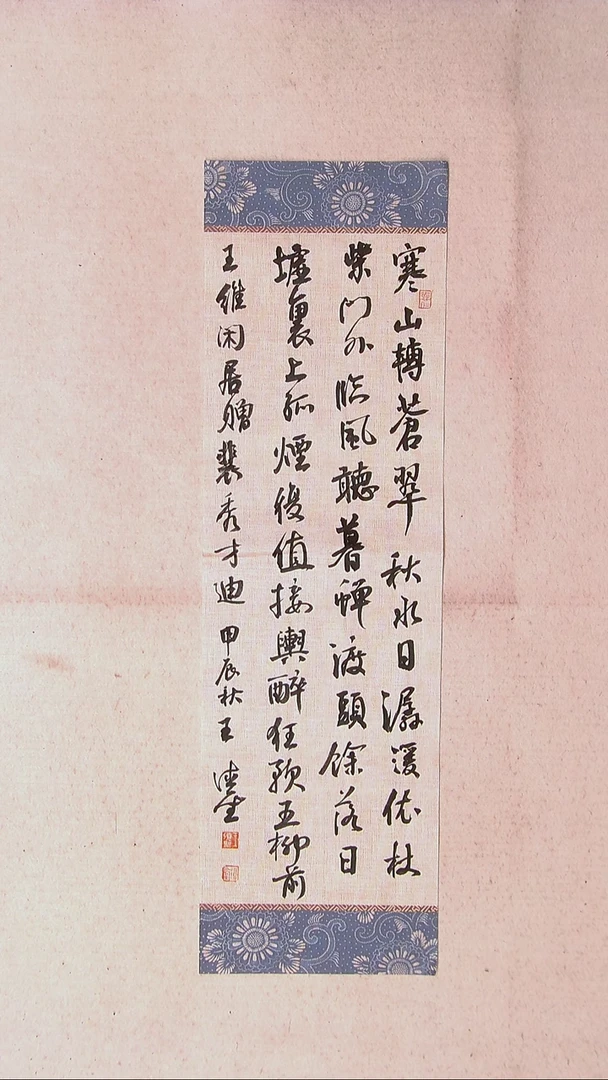 寒山轉蒼翠秋水日潺湲依杖
柴門外臨風聽暮蟬渡頭餘落日
墟裏上孤煙復值接輿醉狂歌五柳前
王維閑居贈裴秀才迪甲辰秋王